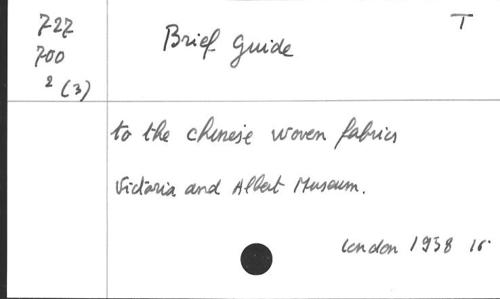 727
700
2 (3)
Brief Guide
T
to the chinese woven fabrics
Victoria and Albert Museum.
London 1938 16.